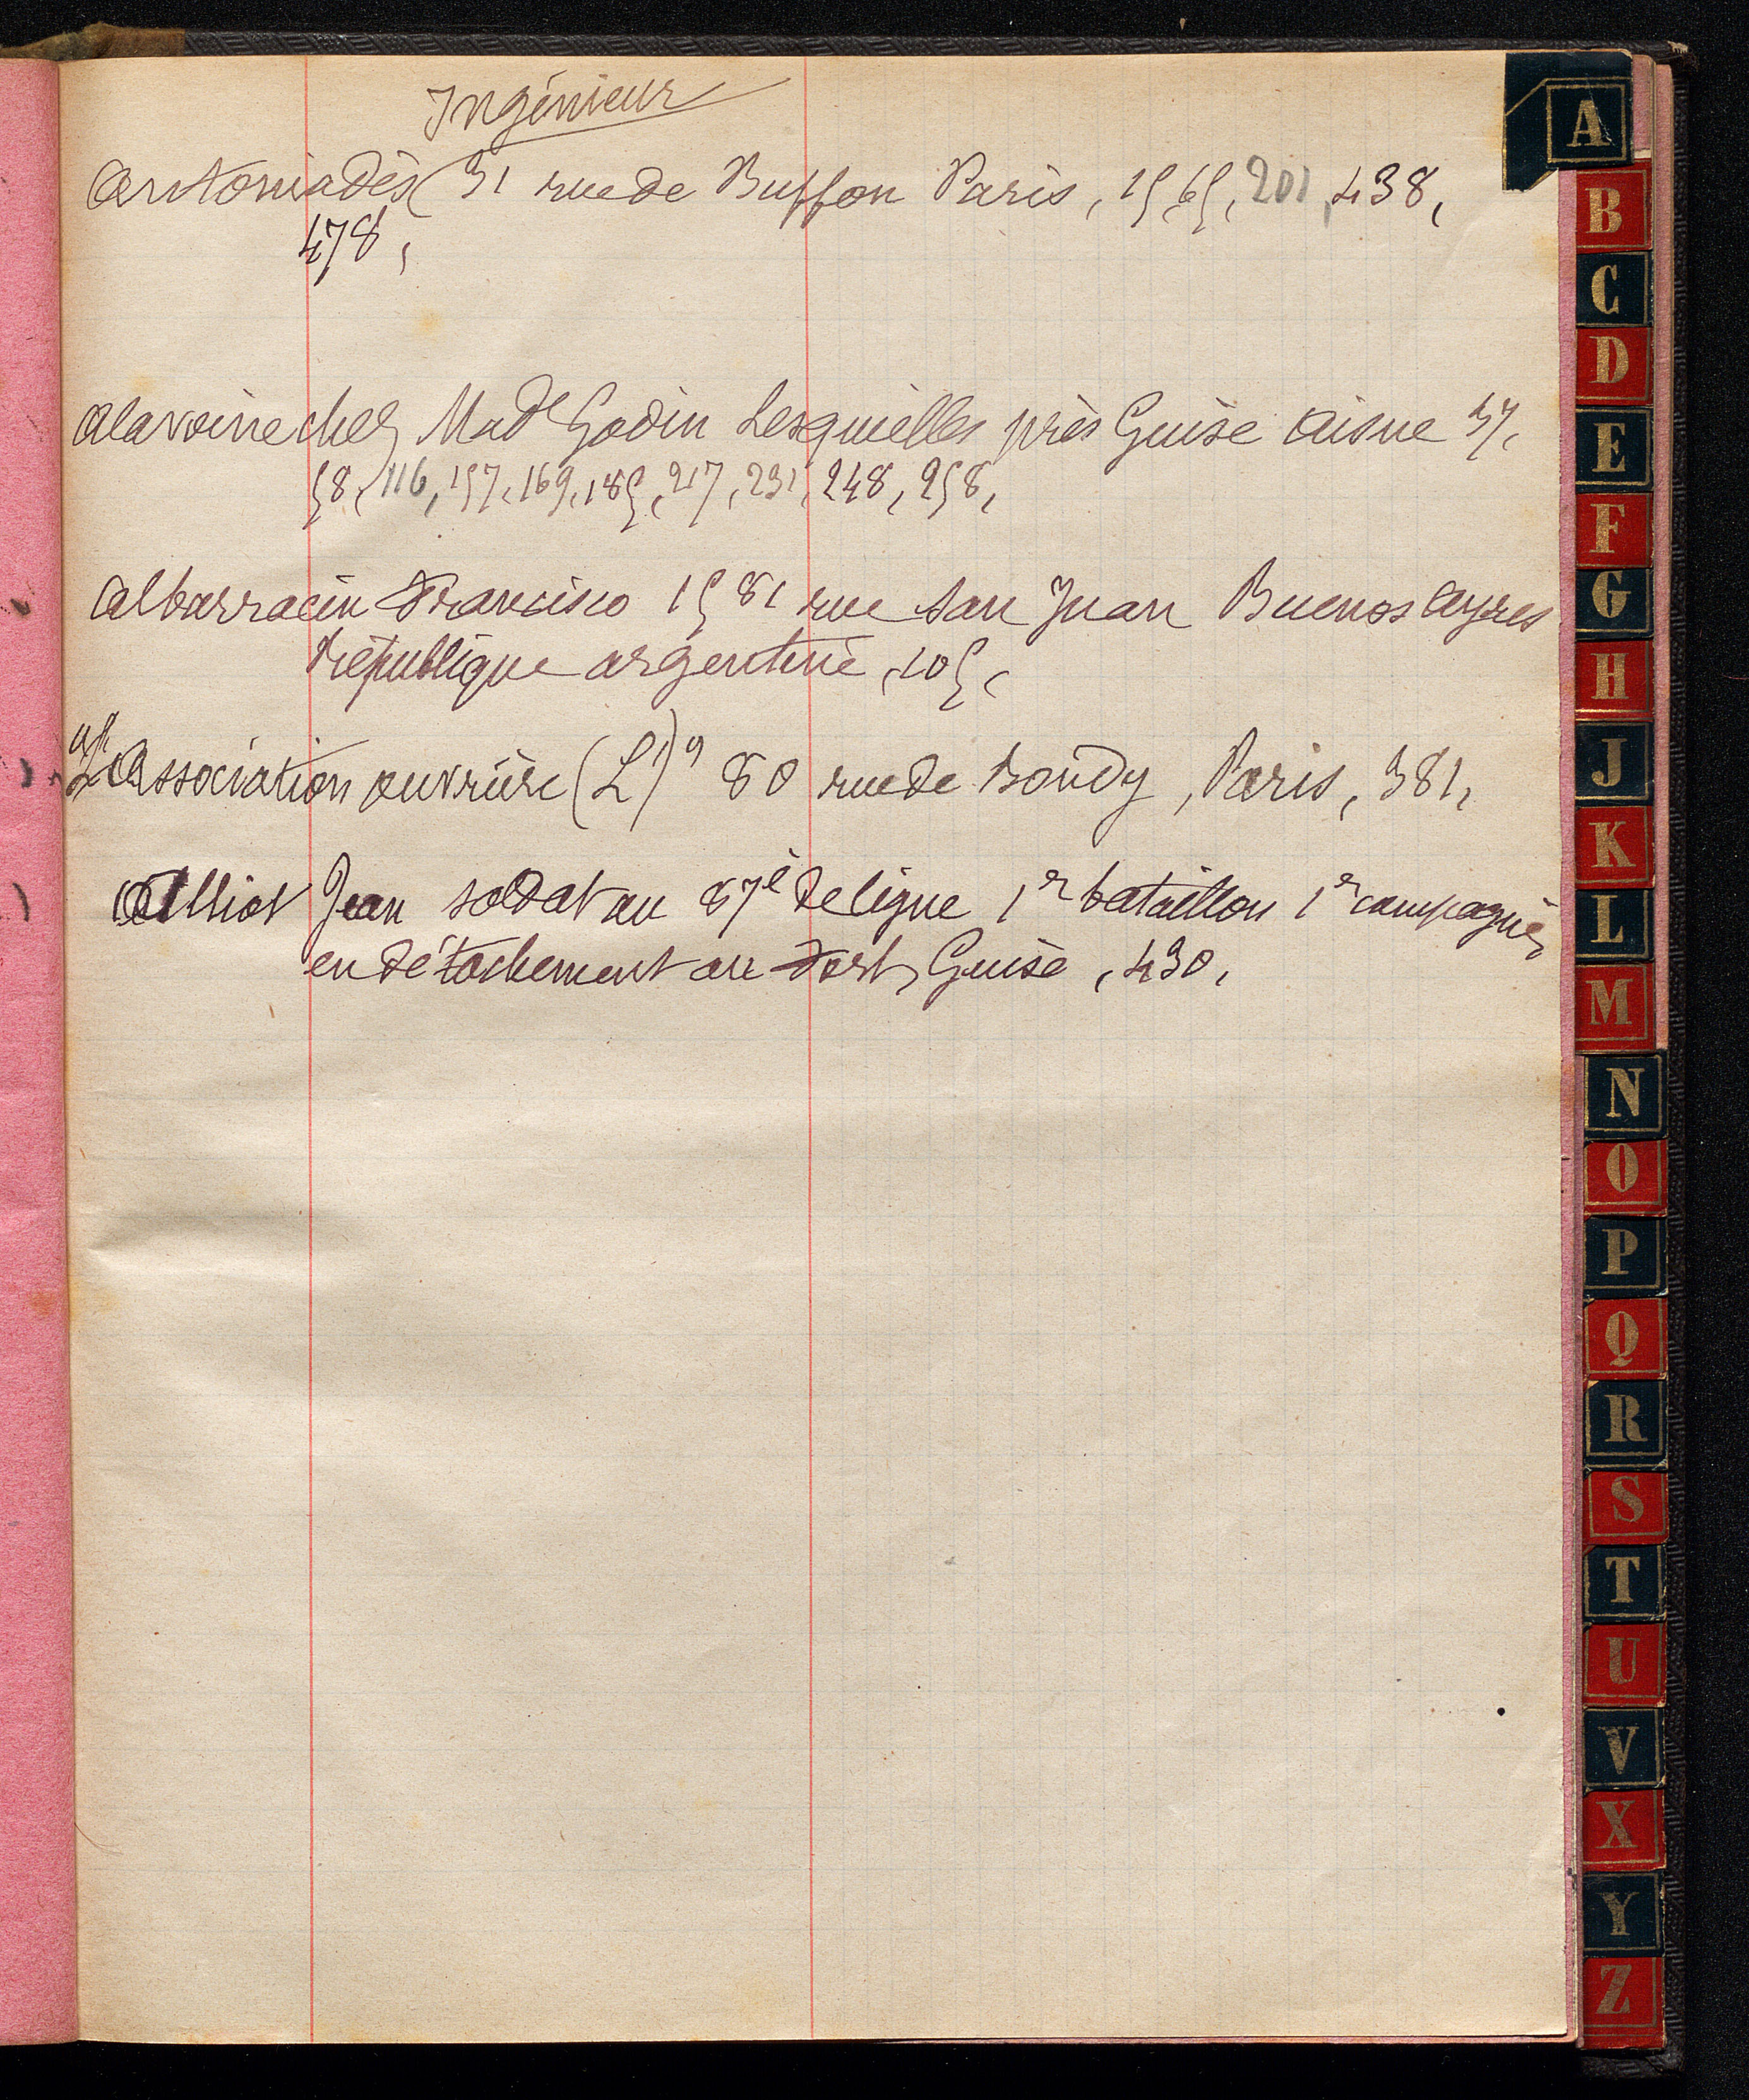 Ingénieur
Antoniadès 31 rue de Buffon Paris, 15, 65, 201, 438,
478,
Alavoine chez Made Godin Lesquielles près Guise Aisne 37,
58, 116, 157, 169, 185, 217, 231, 248, 258,
Albarracin Francisco 1581 rue San Juan Buenos Ayres
République argentine, 105,
Association ouvrière (L') 80 rue de Bondy, Paris, 381,
Alliot Jean soldat au 87è de ligne 1r bataillon 1r compagnie,
en détachement au Fort, Guise, 430,
A
B
C
D
E
F
G
H
J
K
L
M
N
O
P
Q
R
S
T
U
V
X
Y
Z